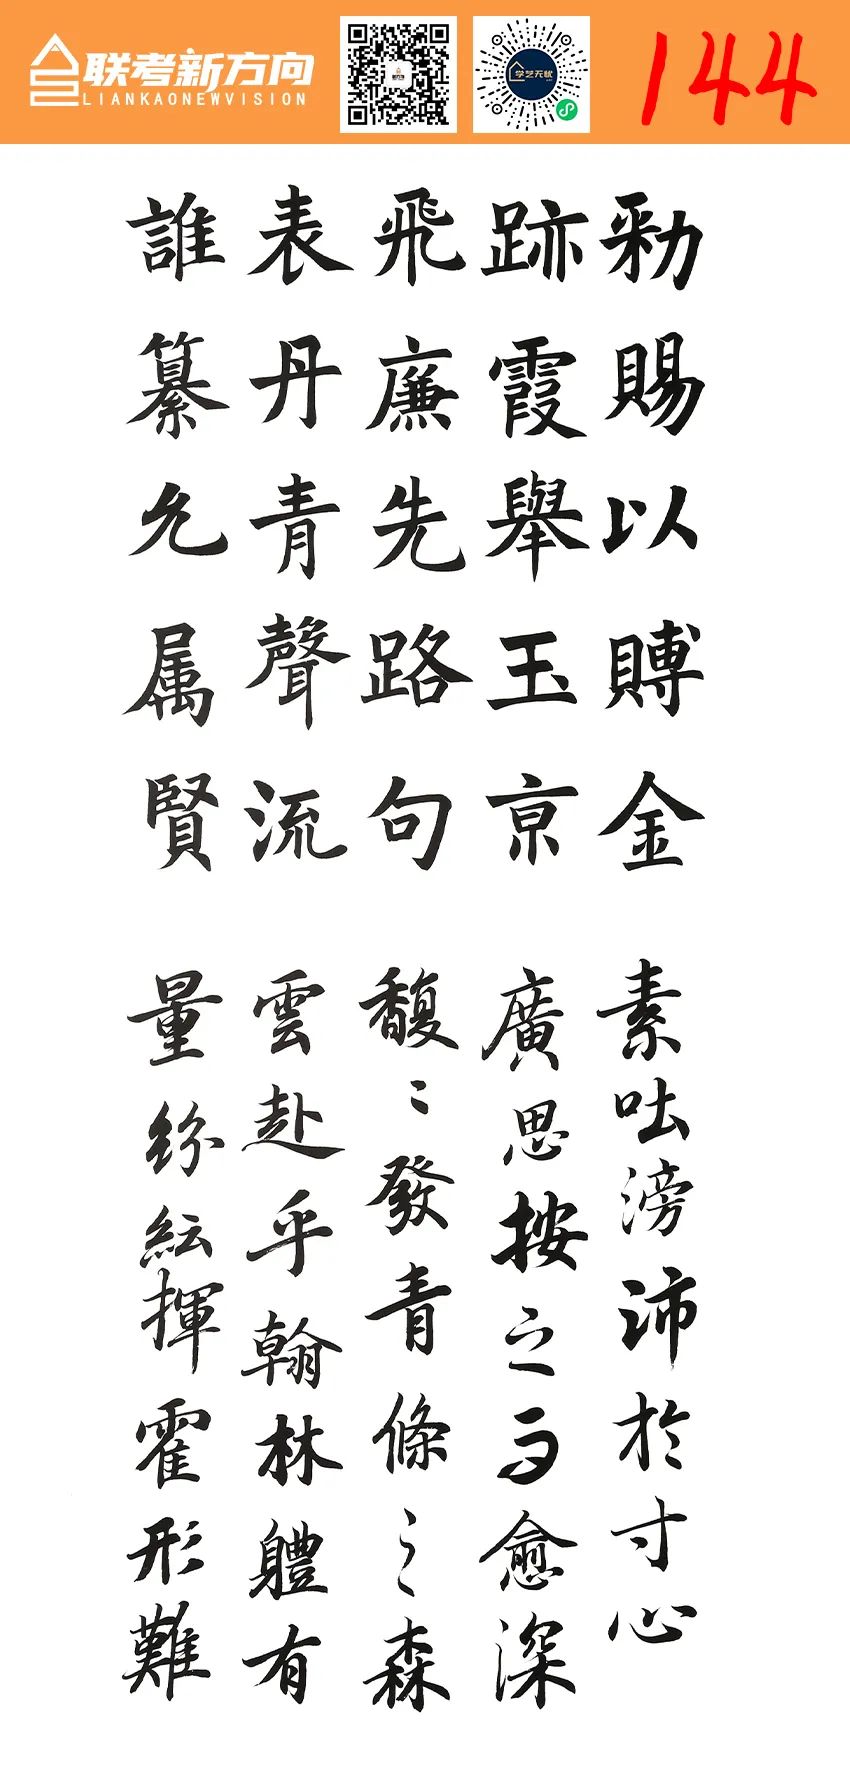 联考新方向
LIANKAONEWVISION
学艺无忧
144
勑賜以賻金
跡霞舉玉京
飛廉先路句
表丹青聲流
誰纂允属賢
素吐滂沛於寸心
廣思按之而愈深
馥〻發青條〻森
雲赴乎翰林體有
量紛紜揮霍形難